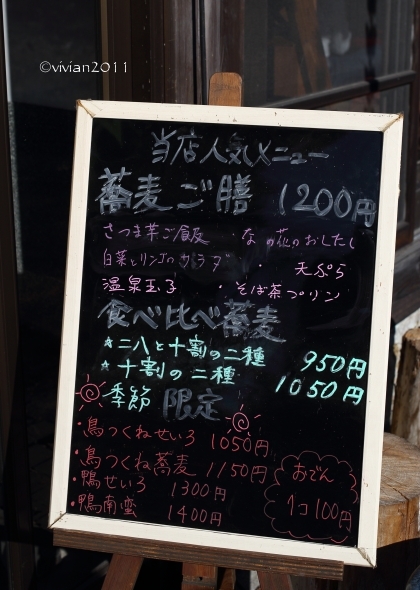 ©vivian2011
当店人気メニュー
蕎麦ご膳 1200円
さつま芋ご飯 ・なの花のおしたし
白菜とリンゴのサラダ ・ 天ぷら
温泉玉子 ・そば茶プリン
食べ比べ蕎麦
*二八と十割の二種 950円
*十割の二種 1050円
季節限定
・鳥つくねせいろ 1050円
・鳥つくね蕎麦 1150円
・鴨せいろ 1300円
・鴨南蛮 1400円
おでん
1コ100円